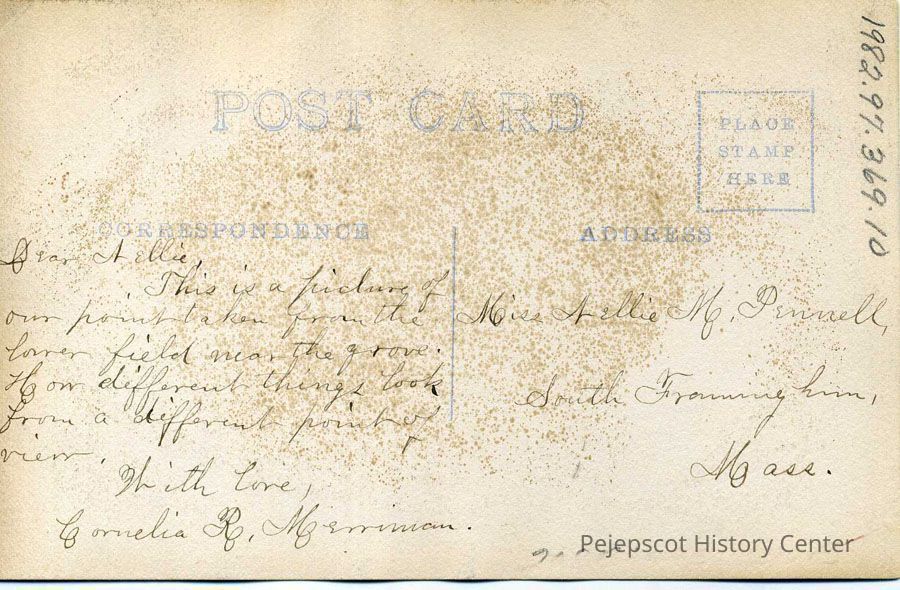 POST CARD
PLACE
STAMP
HERE
1982.97.369.10
CORRESPONDENCE
ADDRESS
Dear Nellie,
This is a picture of
our point taken from the
lower field near the grove.
How different things look
from a different point of
view.
With love,
Cornelia R. Merriman.
Miss Nellie M. Pennell,
South Framingham,
Mass.
Pejepscot History Center